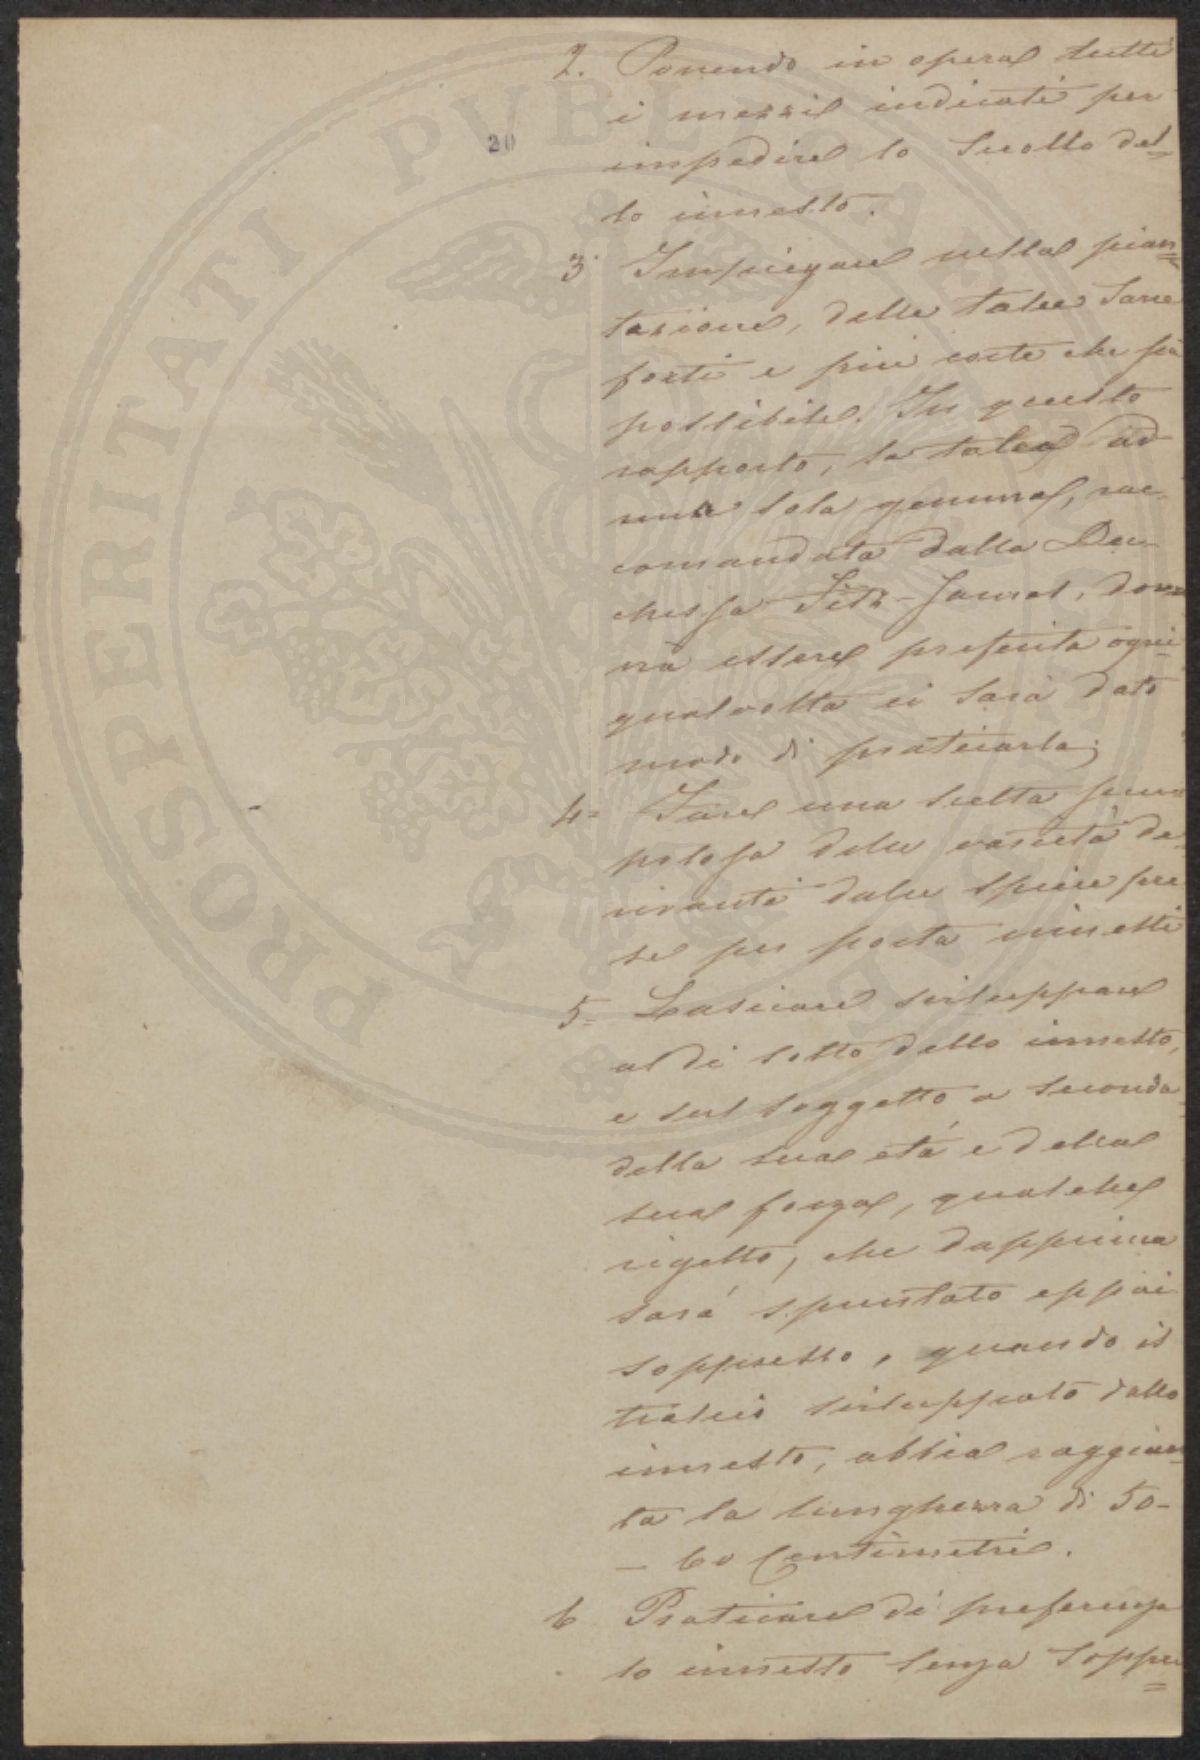 PROSPERITATI PVBLICAE
20
2. Ponendo in opera tutti
i mezzi indicati per
impedire lo scollo del=
lo innesto.
3. Impiegare nella pian=
tazione, delle talee sane
forti e più corte che sia
possibile. In questo
rapporto, la talea ad
una sola gemma, rac-
comandata dalla Du-
chessa Fitz-James, dov
rà essere preferita ogni
qualvolta ci sarà dato
modo di praticarla;
4= Fare una scelta scru
polosa delle varietà de
rivanti dalle specie pre
se per porta innesti
5= Lasciare sviluppare
al di sotto dello innesto,
e sul soggetto a seconda
della sua età e della
sua forza, qualche
rigetto, che dapprima
sarà spuntato eppoi
soppresso, quando il
tralcio sviluppato dallo
innesto, abbia raggiun
ta la lunghezza di 50-
- 60 Centimetri.
6 Praticare di preferenza
lo innesto senza soppri=